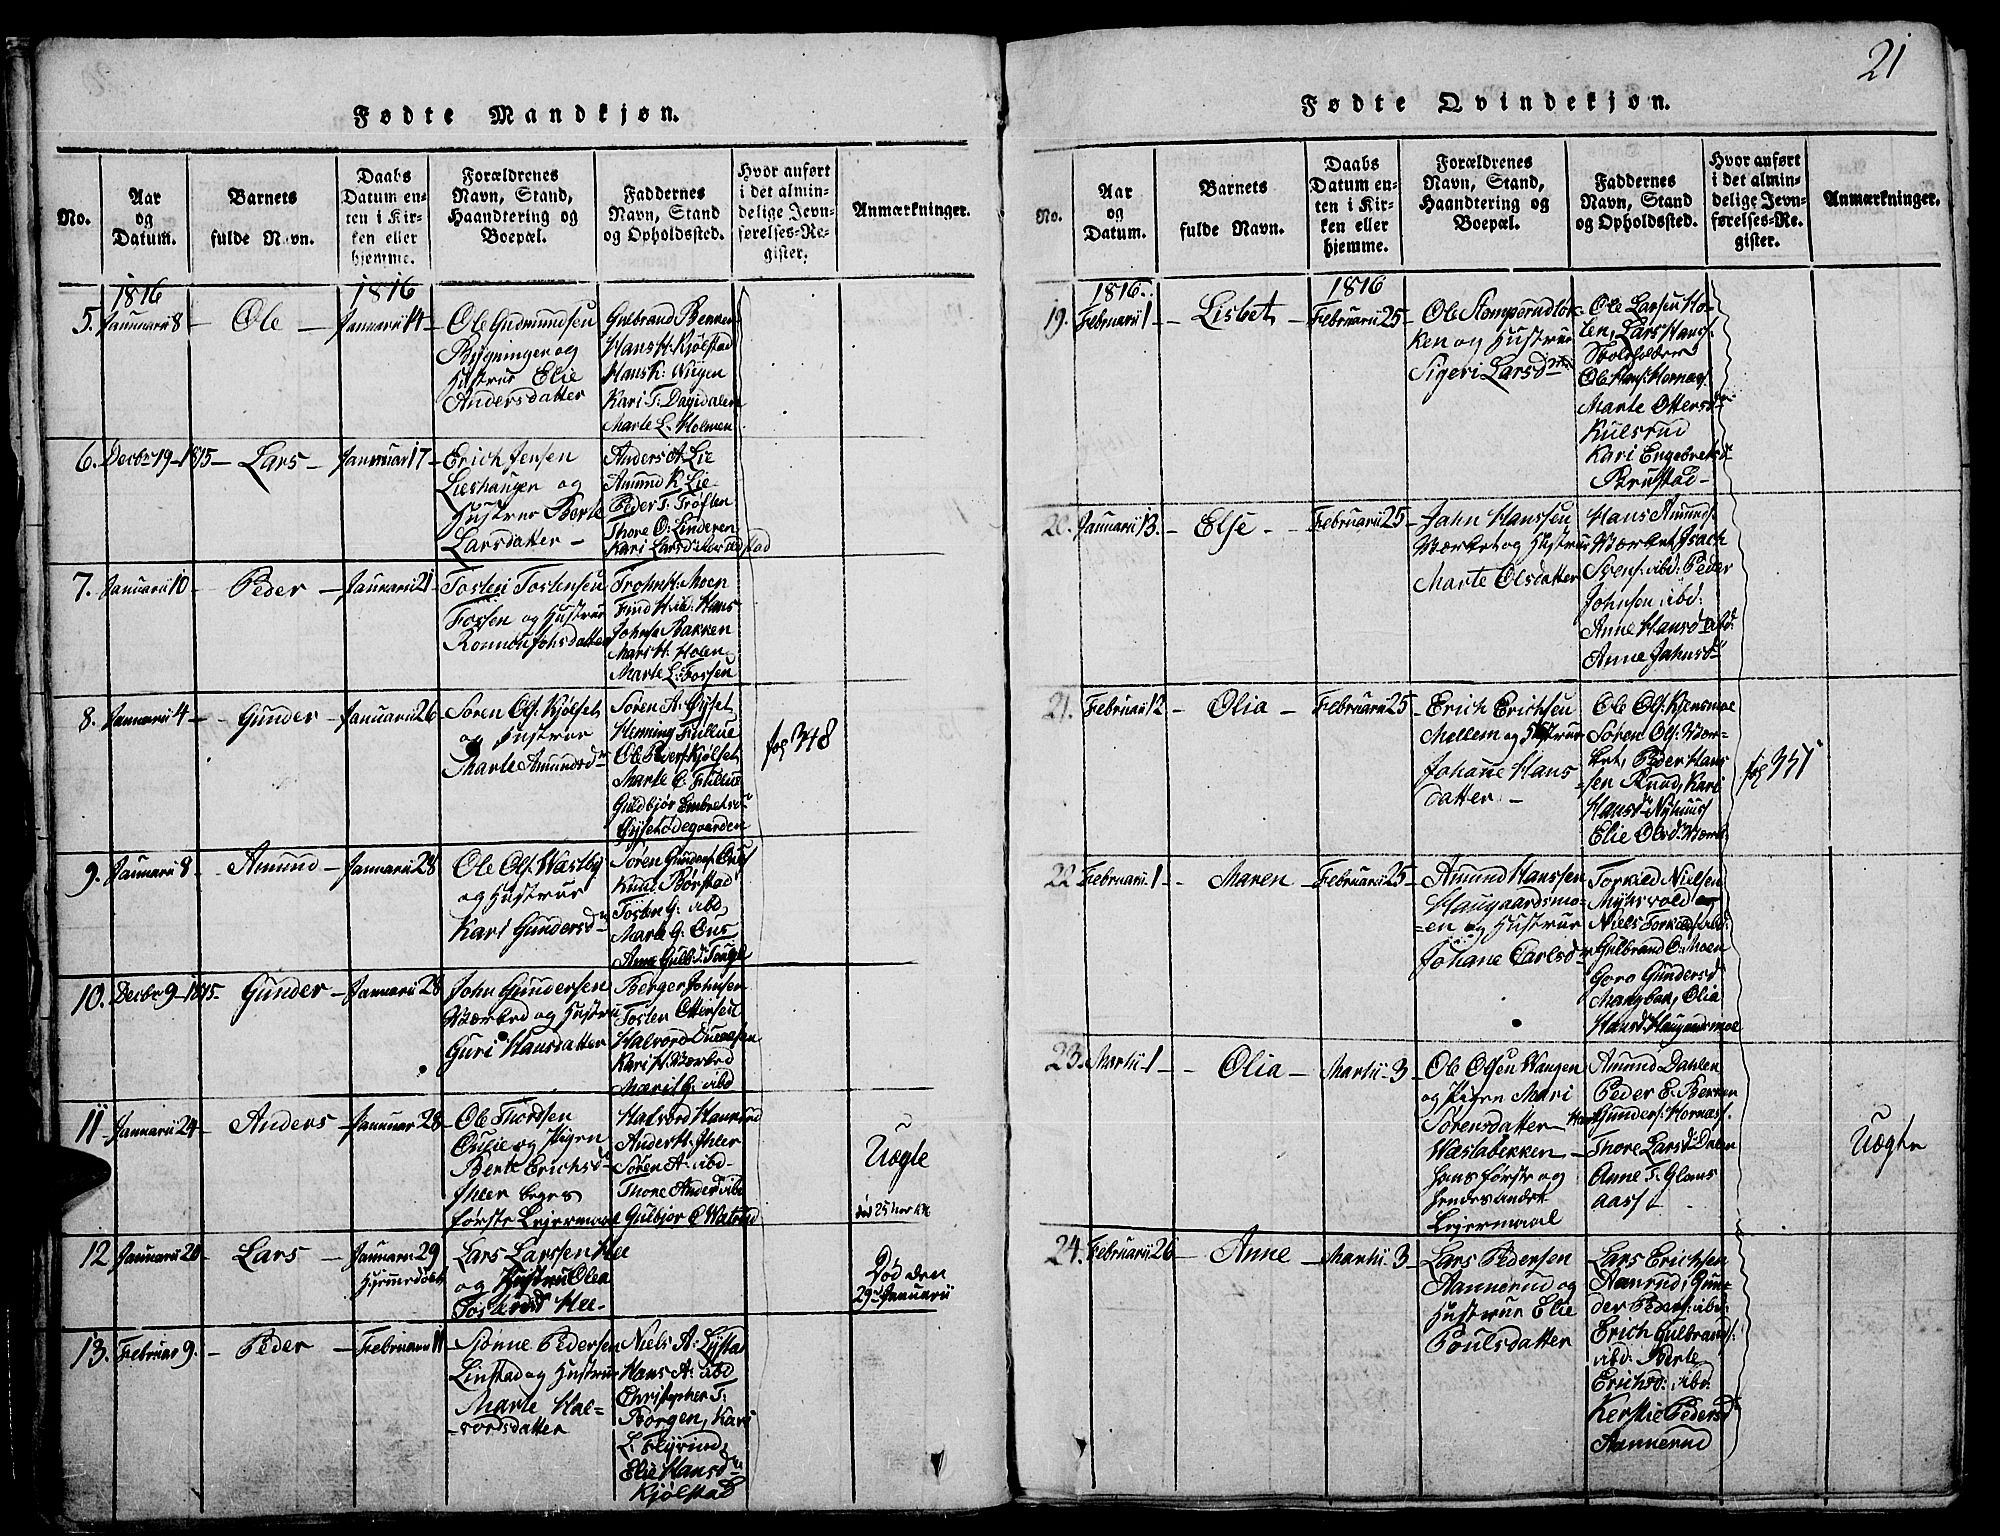 21
Fødte Mandkjøn.
No.
Aar
og
Datum.
Barnets
fulde Navn.
Daabs
Datum en-
ten i Kir-
ken eller
hjemme.
Forældrenes
Navn, Stand,
Haandtering og
Boepæl.
Faddernes
Navn, Stand
og Opholdssted.
Hvor anført
i det almin-
delige Jevn-
førelses-Re-
gister.
Anmærkninger.
1816
1816
5.
Januarii 8
Ole
Januarii 14
Ole Gudmundsen
Bygninger og
Hustrue Elie
Andersdatter
Gulbrand
Hans H. Kjølstad
Hans K:
Kari T.
Marte L. Holmen
6.
Decbr 19 - 1815
Lars
Januar 17
Erich Jensen
Lieshaugen og
Hustrue Berte
Larsdatter
Anders A. Lie
Amund K. Lie
Peder T. Trøften
Thore O. Linderen
Kari Larsd
7.
Januarii 10
Peder
Januarii 21
Tosten Tostensen
Fossen og Hustrue
Johsdatter
Moen
Find H. ibd: Hans
Johns Bakken
Marit Holen
Marte L. Fossen
8.
Januarii 4
Gunder
Januarii 26
Søren Ols. Kjølset
og Hustrue
Marte Amundsd
Søren A. Øyset
Henning Fullue
Ole Kjølset
Marte C. Fullue
Guldbjør Embretsd
Øysetødegaarden
fog 348
9.
Januarii 8
Amund
Januarii 28
Ole Ols. Wæstby
og Hustrue
Kari Gundersd
Søren Gunders. Ous
Knud Børstad
Tosten G. ibd
Marte G. Ous
Anne Gulb.d:
10.
Decbr 9 - 1815
Gunder
Januarii 28
John Gundersen
og Hustrue
Guri Hansdatter
Berger Johnsen
Tosten Ottersen
Halvord
Kari H.
Marit G. ibd
11
Januarii 24
Anders
Januar 28
Ole Thordsen
og Pigen
Berte Erichsd
Ihler begges
første Lejermaal
Halvord
Anders H. Ihler
Søren A. ibd
Thone Andersd ibd
Gulbjør O
Uægte
død 25 Nov
12
Januarii 20
Lars
Januarii 29
Hjemmedøbt
Lars Larssen Hee
og Hustrue Olea
Tostensd Hee
Død den
29 Januarii
13.
Februar 9.
Peder
Februarii 11
Sjønne Pedersen
Linstad og Hustrue
Marte Hal-
vordsdatter
Niels A: Lystad
Hans A. ibd
Christopher T:
Borgen, Kari
L.
Elie Hansd
Kjølstad
Fødte Qvindekjøn.
No.
Aar
og
Datum.
Barnets
fulde Navn.
Daabs
Datum en-
ten i Kir-
ken eller
hjemme.
Forældrenes
Navn, Stand,
Haandtering og
Boepæl.
Faddernes
Navn, Stand
og Opholdssted.
Hvor anført
i det almin-
delige Jevn-
førelses-Re-
gister.
Anmærkninger.
1816
1816
19.
Februarii 1
Lisbet
Februarii 25
Ole Stomperudløk-
ken og Hustrue
Sigeri Larsd
Ole Larsen Ho-
len, Lars Hans.
Ole Hans. Hornæs
Marte Ottersd
Kulsrud
Kari Engebretsd
20.
Januarii 13.
Else
Februarii 25
John Hanssen
Værket og Hustrue
Marte Olsdatter
Hans Amunds.
Værket Isach
Svens. ibd: Peder
Johnsen ibd:
Anne Hansd ibd:
Anne Johnsd
21.
Februarii 12
Olia
Februarii 25
Erich Erichsen
Mellem og Hustrue
Johane Hans
datter
Ole Ols. Kjensmoe
Søren Ols. Vær-
ket, Peder Hans
sen Ruud, Kari
Hansd Nyhuus
Elie Olsd. Værket
fog 351
22
Februarii 1
Maren
Februarii 25
Amund Hanssen
Haugaardsmo-
en og Hustrue
Johane Carlsd
Torkild Nielsen
Myhrvold
Niels Torkilds. ibd:
Gulbrand O. Moen
Goro Gundersd
Mangbar, Olia
Hansd. Haugaardsmoe
23.
Martii 1
Olia
Martii 3
Ole Olsen Haugen
og Pigen Mari
Sørensdatter
Wæslabekken
hans første og
hendes andet
Lejermaal
Amund Dahlen
Peder E. Bekken
Gunder Hornæs
Thore Larsd. Dalen
Anne T. Glams
aas
Uægte
24.
Februarii 26
Anne
Martii 3
Lars Pedersen
Aannerud og
Hustrue Elie
Poulsdatter
Lars Erichsen
Aanrud, Gun-
der Peders. ibd:
Erich Gulbrands.
ibd: Berte
Erichsd: ibd:
Kerstie Pedersd
Aannerud